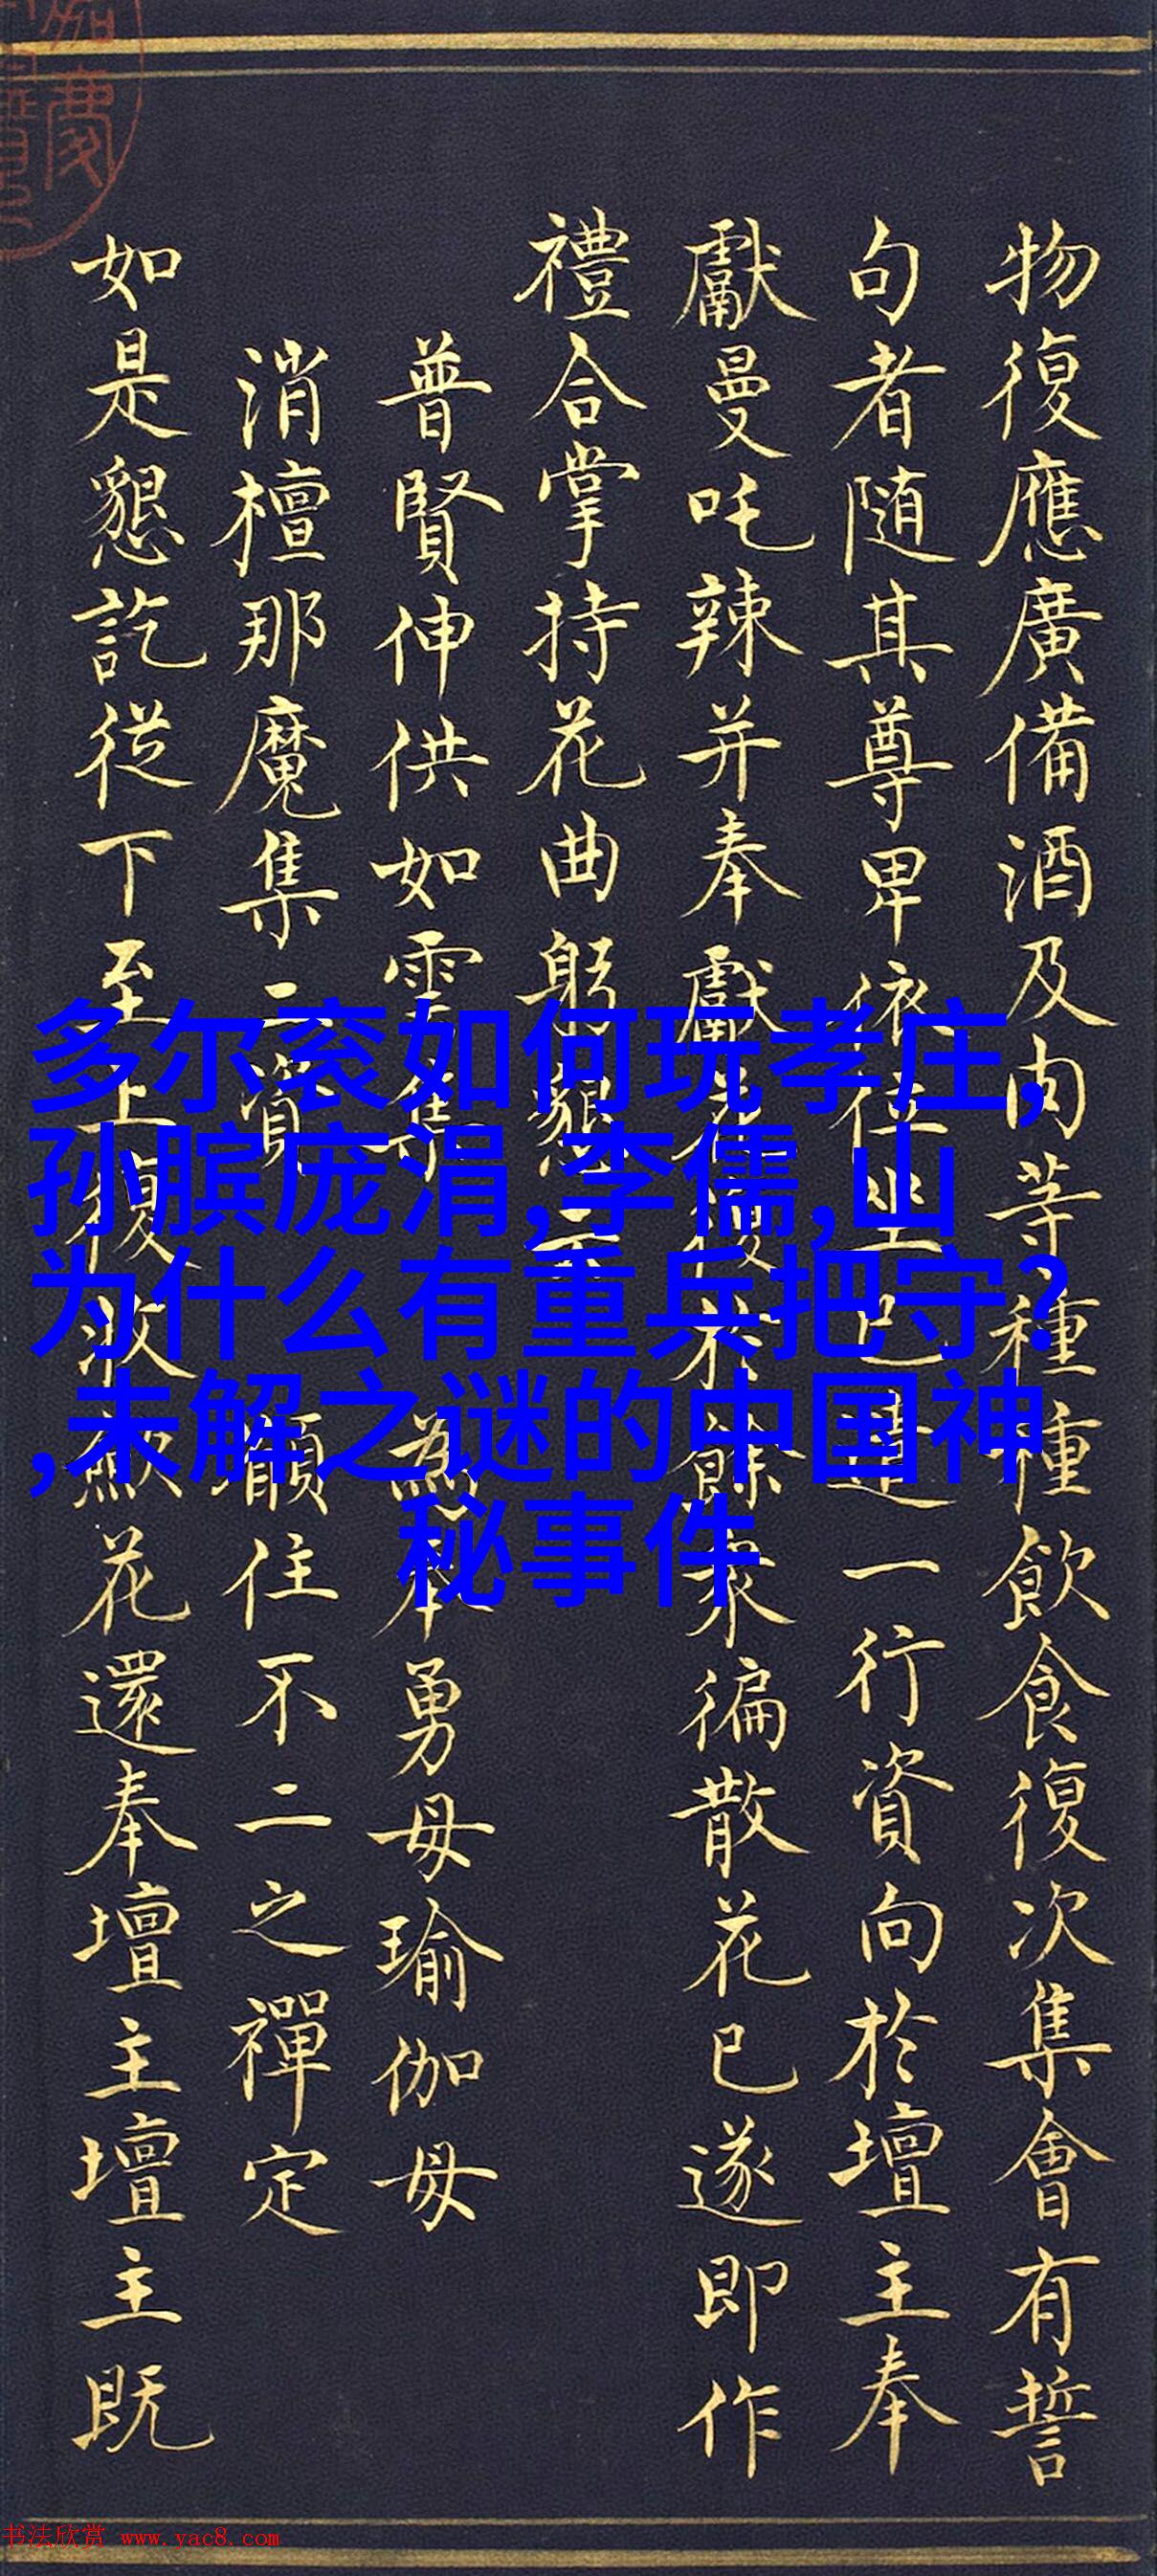 物復應廣備酒及肉等種種飲食復次集會有誓
句者随其尊卑依位坐已一行資向於壇主奉
獻曼吒辣并奉獻花復於餘衆徧散花已遂即作
禮合掌持花曲躬懇云
普賢伸供如雲集 為奉勇母瑜伽母
消檀那魔集二資 願住不二之禪定
如是懇訖從下至上復收歛花還奉壇主壇主既
多尔衮如何玩孝庄,
孙膑庞涓,李儒,山
为什么有重兵把守?
,未解之谜的中国神
秘事件
书法欣赏 www.yac8.com